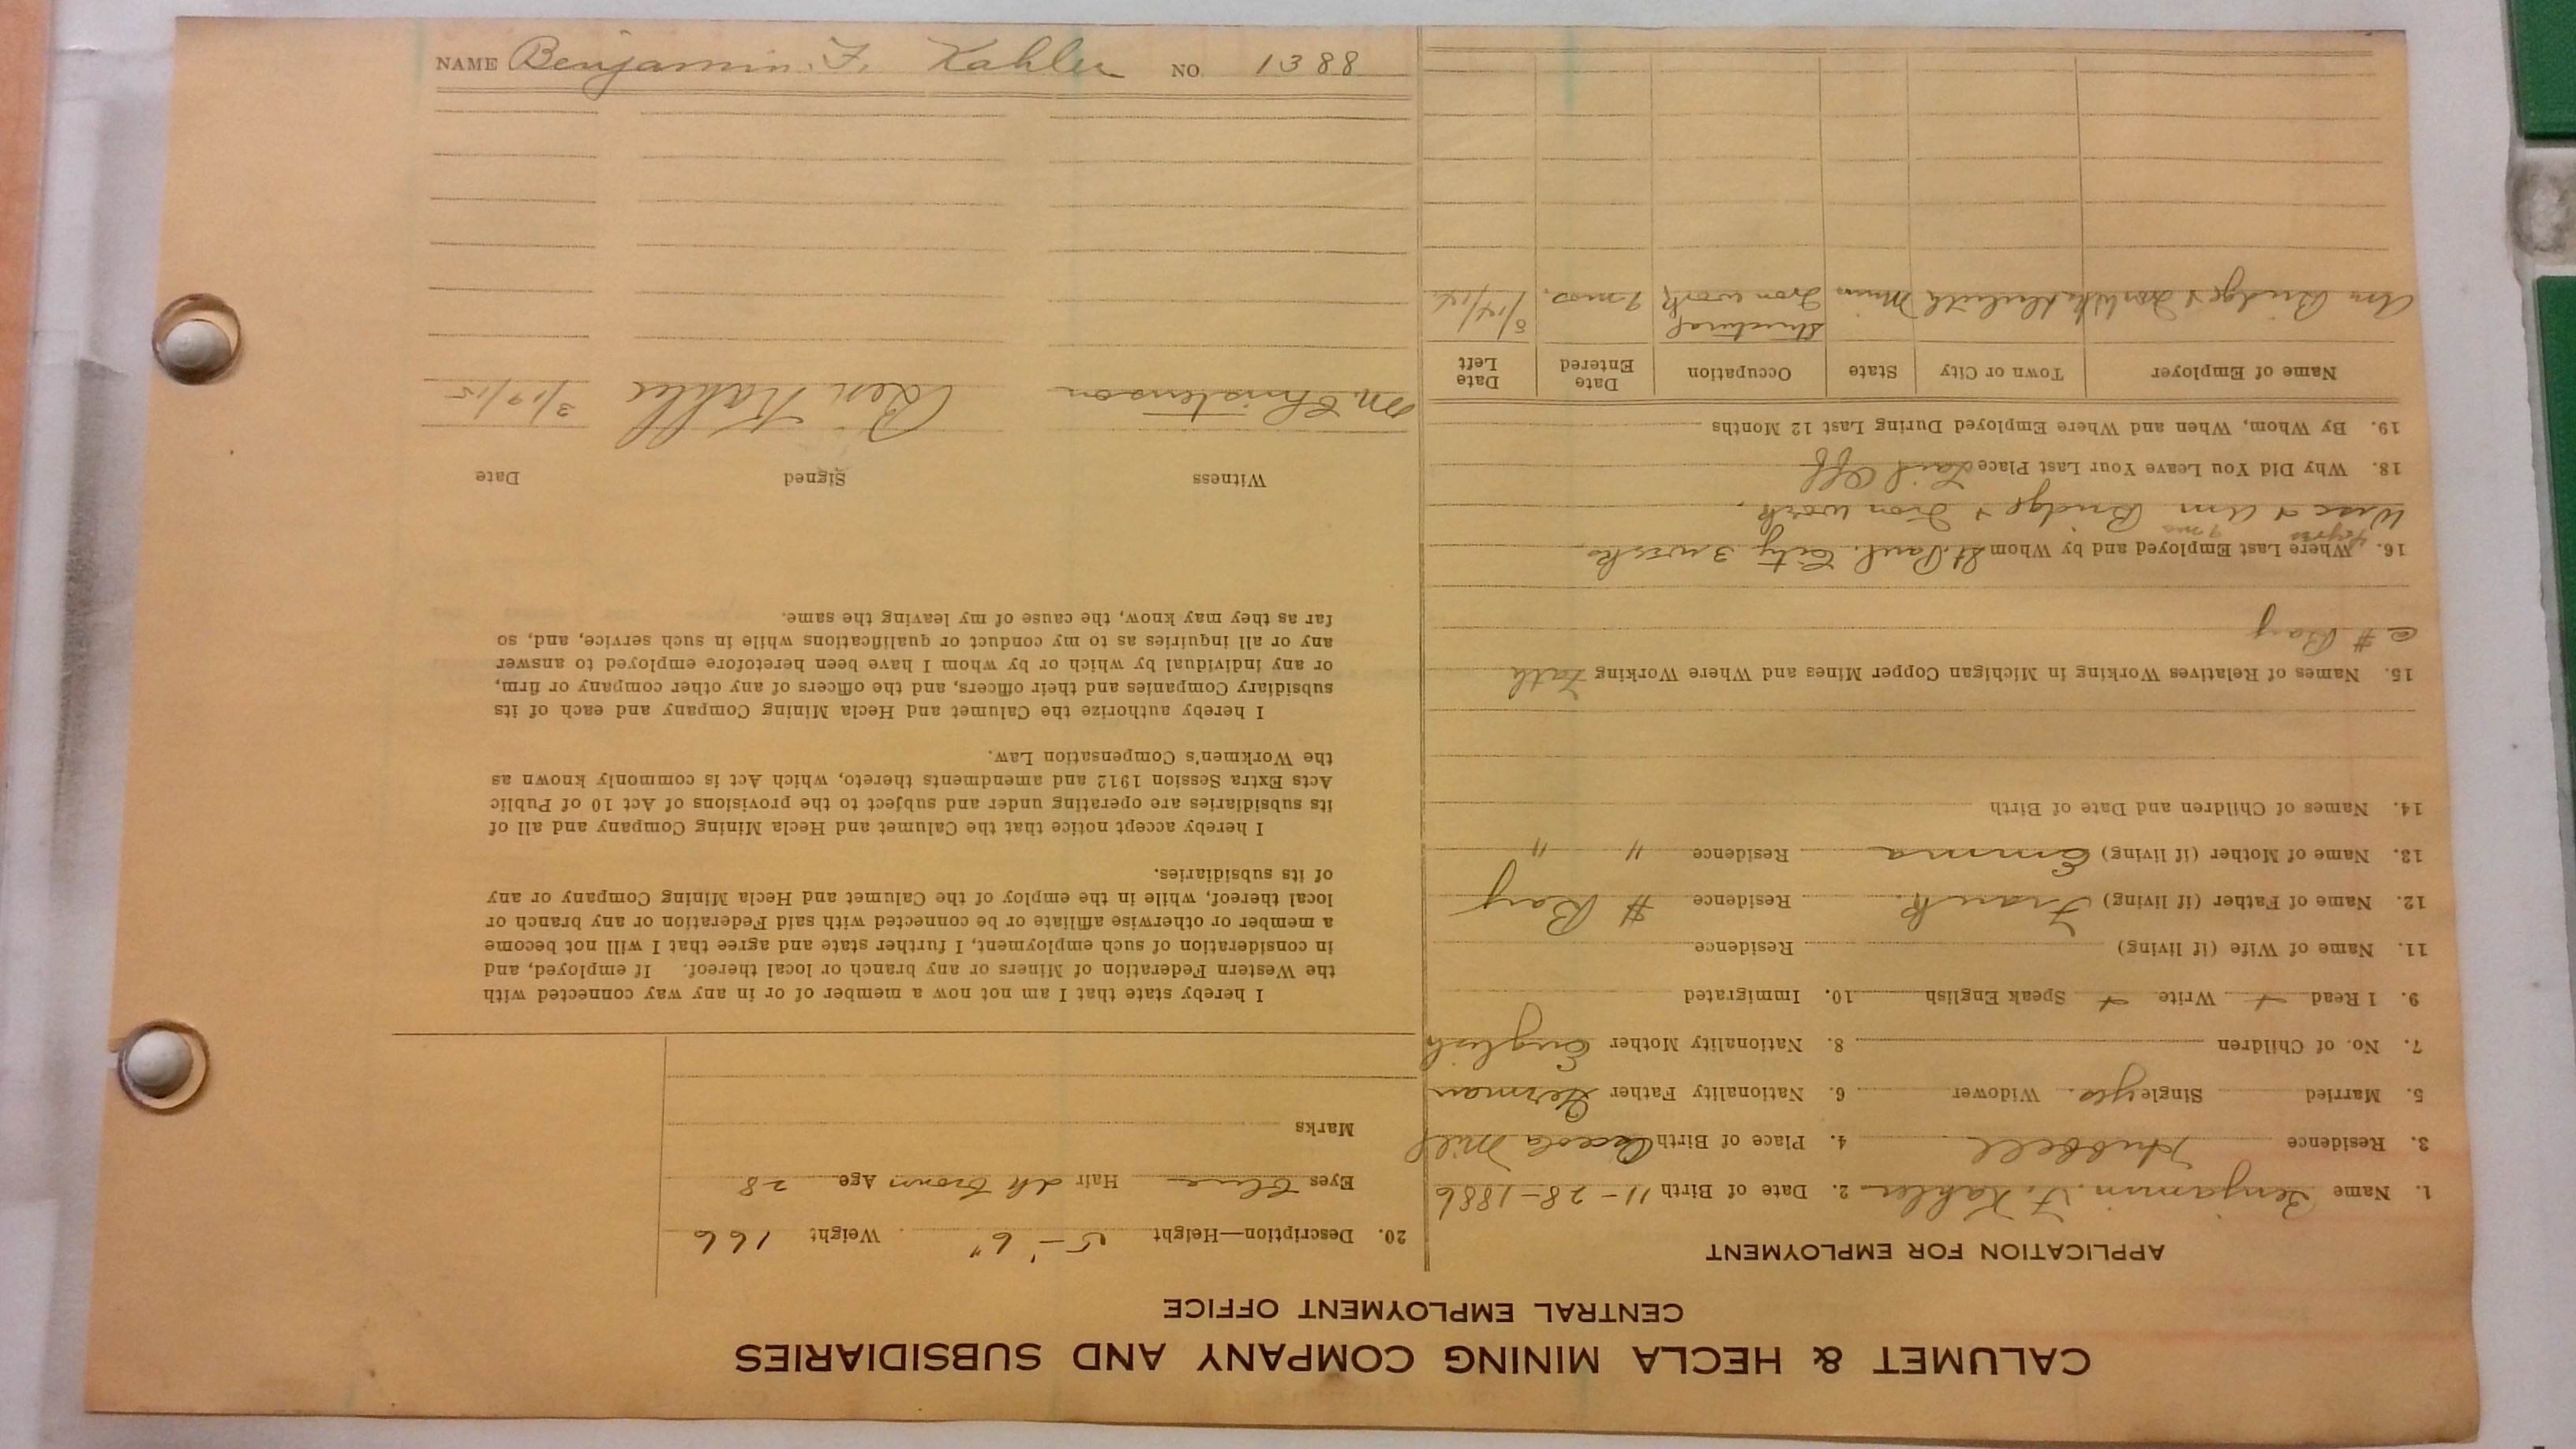 CALUMET & HECLA MINING COMPANY AND SUBSIDIARIES
CENTRAL EMPLOYMENT OFFICE
APPLICATION FOR EMPLOYMENT
1. Name Benjamin. F. Kahler 2. Date of Birth 11-28-1886
3. Residence Hubbell 4. Place of Birth Osceola Mill
5. Married Single yes. Widower 6. Nationality Father German
7. No. of Children 8. Nationality Mother English
9. I Read + Write + Speak English 10. Immigrated
11. Name of Wife (if living) Residence
12. Name of Father (if living) Frank. Residence # Bay
13. Name of Mother (if living) Emma Residence " "
14. Names of Children and Date of Birth
15. Names of Relatives Working in Michigan Copper Mines and Where Working Fath
@ # Bay
16. Where Last Employed and by Whom St. Paul. City 3 weeks
9 mo
Wisc & Am Bridge & Iron work.
18. Why Did You Leave Your Last Place Laid Off
19. By Whom, When and Where Employed During Last 12 Months
Name of Employer Town or City State Occupation Date Entered Date Left
Am Bridge & Iron Wks Duluth Minn Structural Iron work 9 mos.
20. Description—Height 5-' 6" Weight 166
Eyes Blue Hair dk Brown Age 28
Marks
I hereby state that I am not now a member of or in any way connected with
the Western Federation of Miners or any branch or local thereof. If employed, and
in consideration of such employment, I further state and agree that I will not become
a member or otherwise affiliate or be connected with said Federation or any branch or
local thereof, while in the employ of the Calumet and Hecla Mining Company or any
of its subsidiaries.
I hereby accept notice that the Calumet and Hecla Mining Company and all of
its subsidiaries are operating under and subject to the provisions of Act 10 of Public
Acts Extra Session 1912 and amendments thereto, which Act is commonly known as
the Workmen's Compensation Law.
I hereby authorize the Calumet and Hecla Mining Company and each of its
subsidiary Companies and their officers, and the officers of any other company or firm,
or any individual by which or by whom I have been heretofore employed to answer
any or all inquiries as to my conduct or qualifications while in such service, and, so
far as they may know, the cause of my leaving the same.
Witness Signed Date
M. Christenson Ben Kahler 3/19/15
NAME Benjamin. F. Kahler NO. 1388